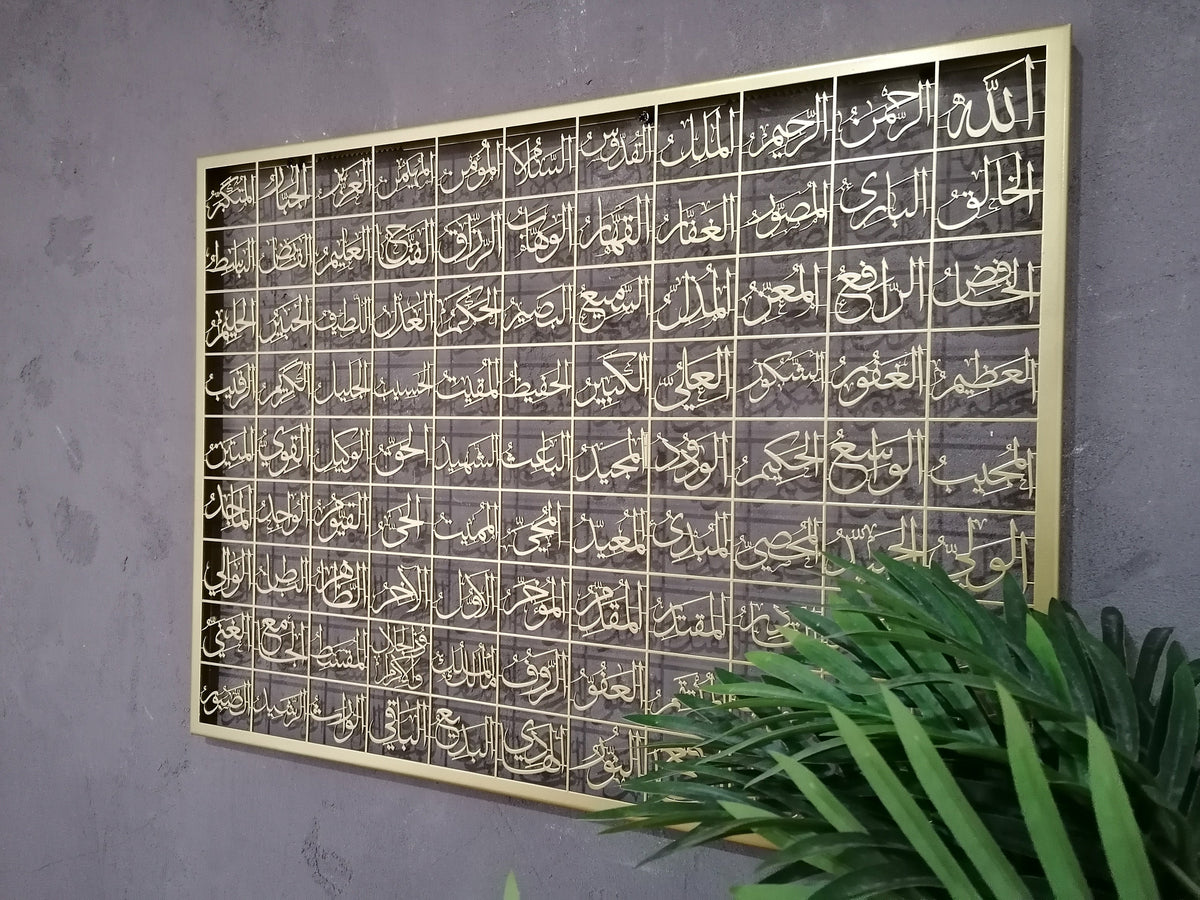 الله الرحمن الرحيم الملك القدوس السلام المؤمن المهيمن العزيز الجبار المتكبر
الخالق البارئ المصور الغفار القهار الوهاب الرزاق الفتاح العليم القابض الباسط
الخافض الرافع المعز المذل السميع البصير الحكم العدل اللطيف الخبير الحليم
العظيم الغفور الشكور العلي الكبير الحفيظ المقيت الحسيب الجليل الكريم الرقيب
المجيب الواسع الحكيم الودود المجيد الباعث الشهيد الحق الوكيل القوي المتين
الولي الحميد المحصي المبدئ المعيد المحيي المميت الحي القيوم الواجد الماجد
القادر المقتدر المقدم المؤخر الأول الآخر الظاهر الباطن الوالي
العفو الرؤوف مالك الملك ذو الجلال والإكرام المقسط الجامع الغني
النور الهادي البديع الباقي الوارث الرشيد الصبور